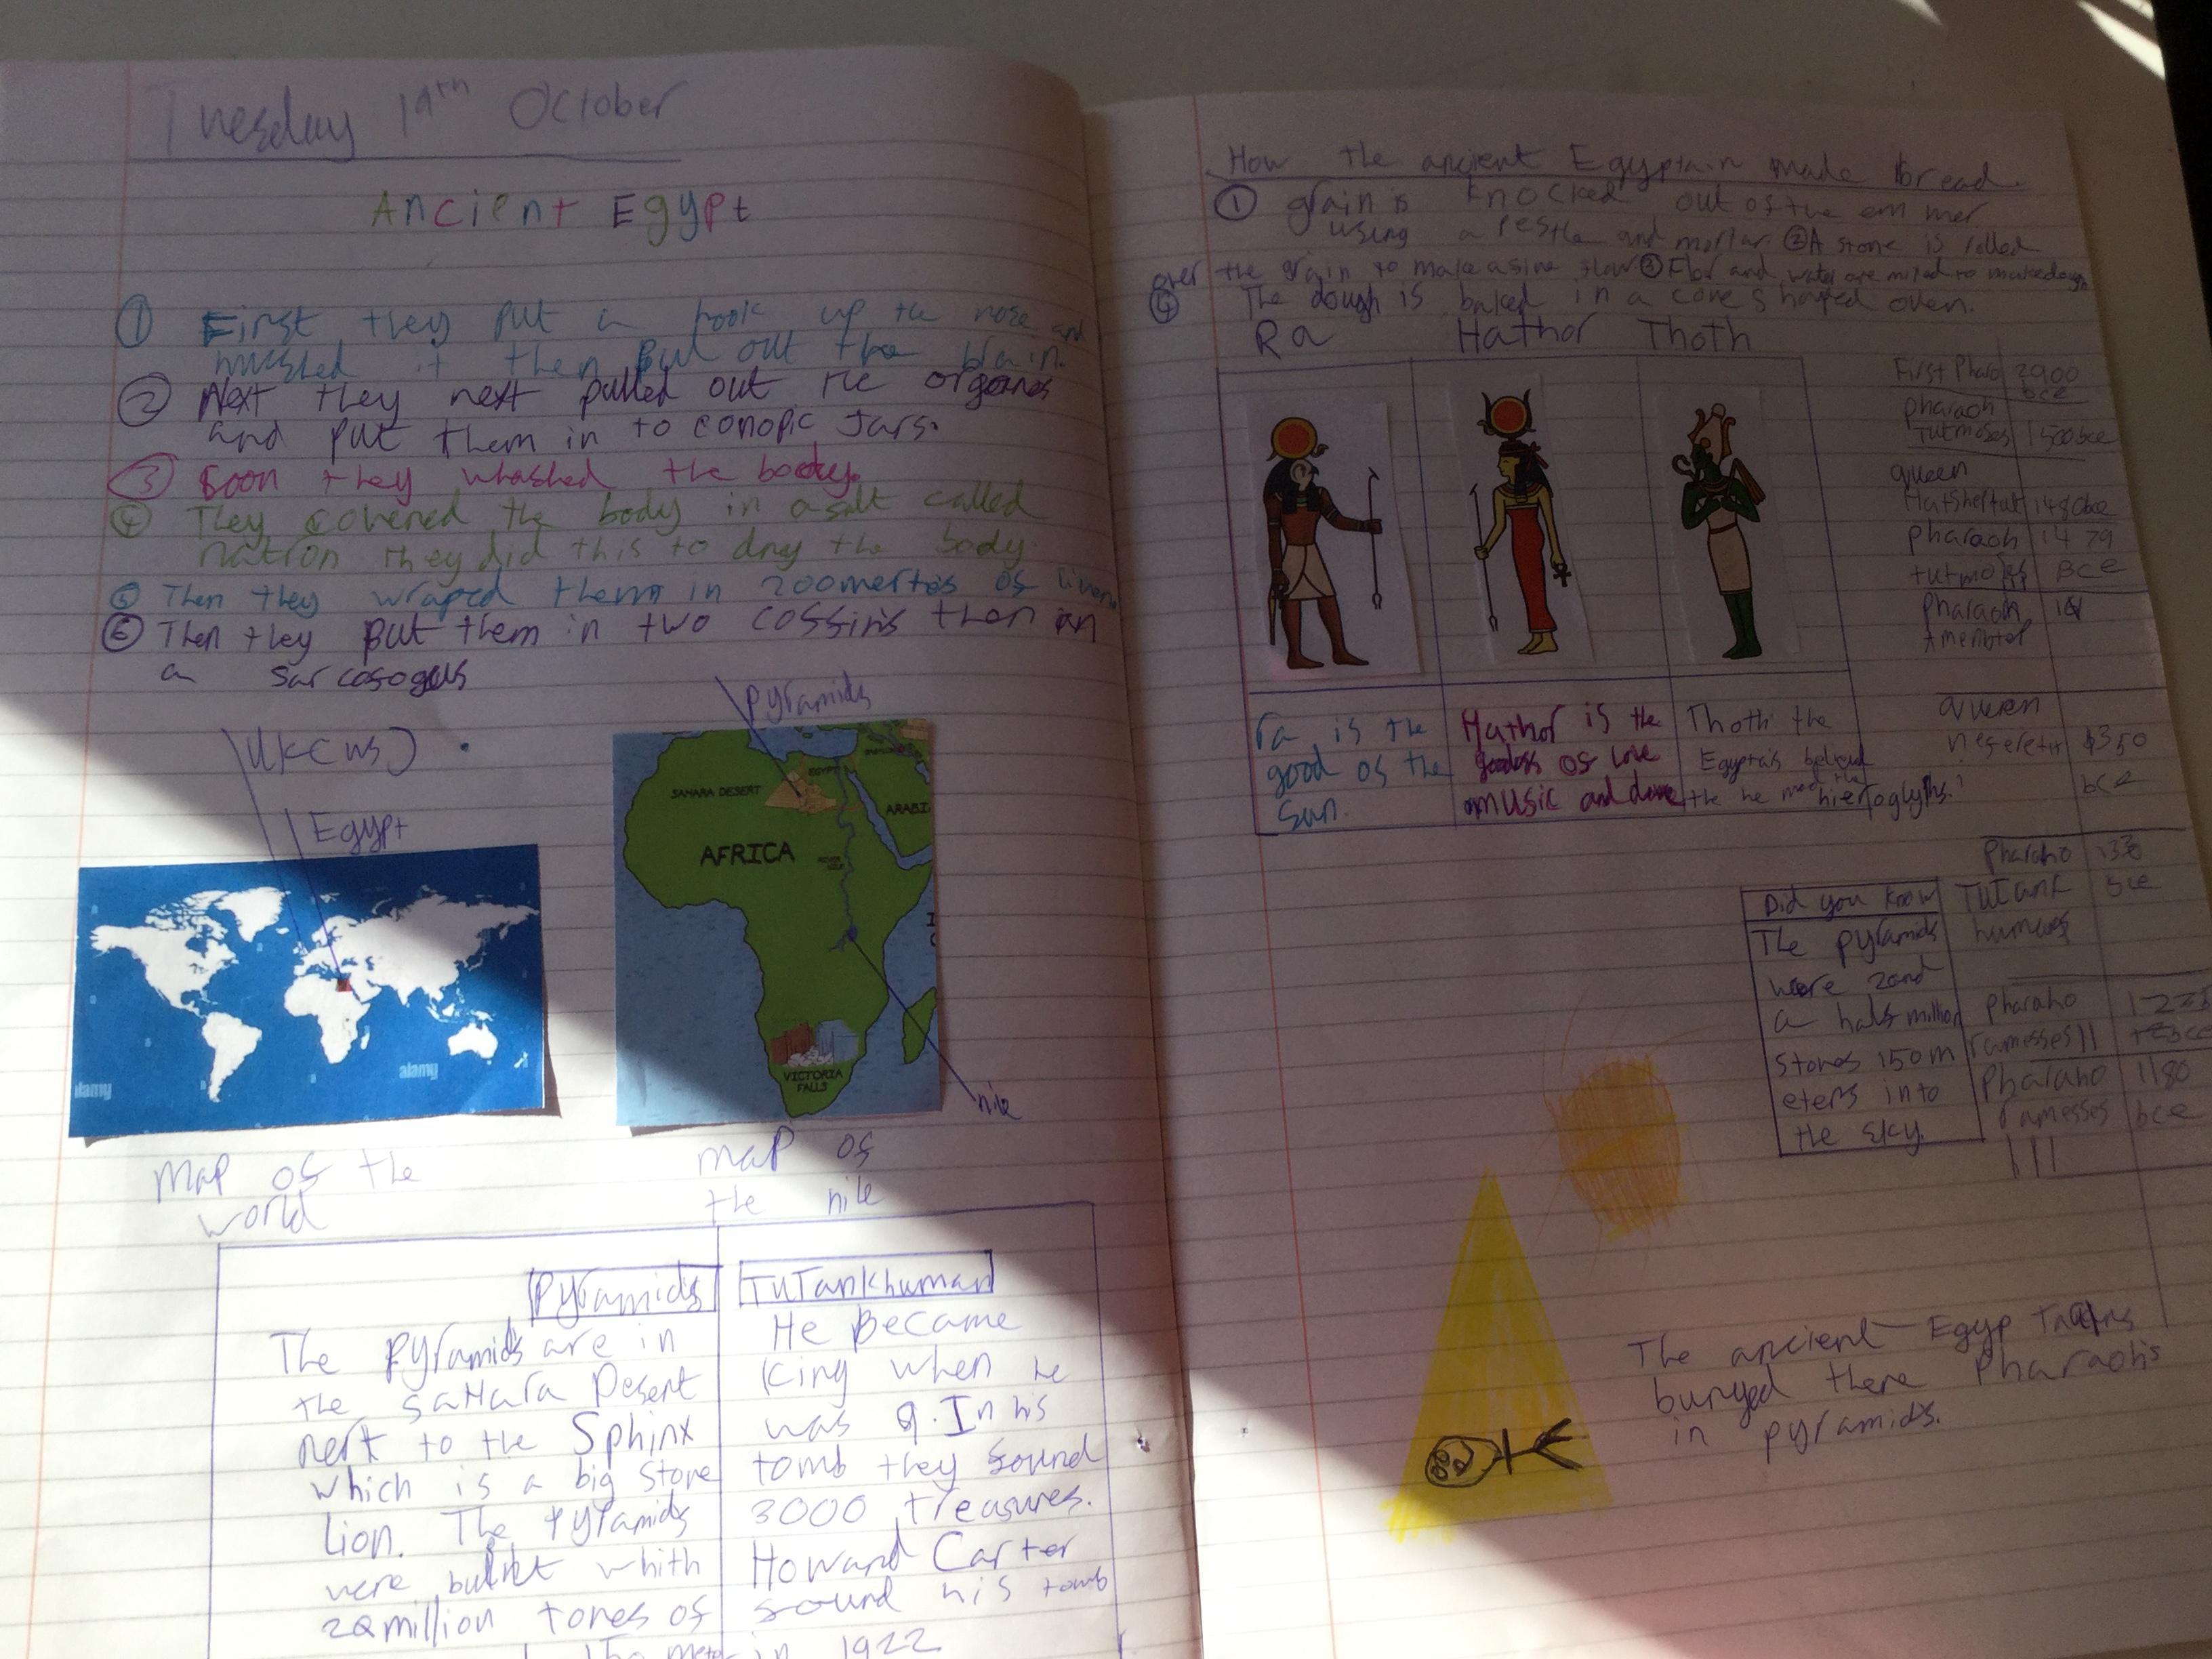 Tuesday 19th October
Ancient Egypt
① First they put a hook up the nose and
mushed it then Pul out the brain.
② Next they next pulled out the organes
and put them in to conopic Jars.
③ Soon they whashed the body.
④ They covered the body in a salt called
natron they did this to dry the body.
⑤ Then they wraped them in 200mertos of
⑥ Then they put them in two coffins then in
a Sarcofogus
UK(us)
Egypt
Pyramids
SAHARA DESERT
EGYPT
ARABI
AFRICA
VICTORIA
FALLS
nile
alamy
alamy
map of the
world
map of
the nile
Pyramids
The pyramids are in
the SaHara Desert
next to the Sphinx
which is a big stone
Lion. The pyramids
were built whith
million tones of
TuTankhuman
He Became
King when he
was 9. In his
tomb they found
3000 treasures.
Howard Carter
found his tomb
in 1922
How the ancient Egyptain made Bread
① grain is knocked out of the emmer
using a pestle and mortar. ② A stone is rolled
over the grain to make a fine flow ③ Flor and water are mixed to make dough
④ The dough is baked in a cone shaped oven.
Ra Hathor Thoth
ra is the
good of the
Sun.
Hathor is the
godess of love
music and dance
Thoth the
Egyptais belived
the he made the hieroglyphs.
First Pharo 2900
bce
pharaoh
Tutmoses 1500bce
queen
1480bce
pharaoh 1479
BCE
pharaoh
queen
bce
Pharaho
TuTank bce
Pharaho
ramesses II
Pharaho 1180
ramesses bce
III
Did you know
The pyramids
were 2 and
a half million
Stones 150m
eters into
the sky.
The ancient Egyptains
buryed there Pharaoh's
in pyramids.